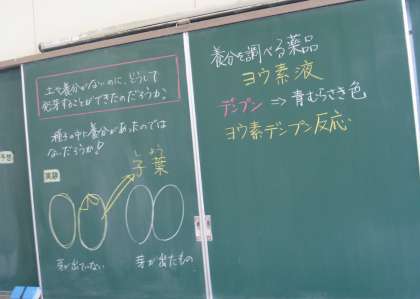 土や養分がないのに、どうして
発芽することができたのだろうか。
種子の中に養分があったのでは
ないだろうか！
予想
実験
しよう
子葉
芽が出ていない
芽が出たもの
養分を調べる薬品
ヨウ素液
デンプン ⇒ 青むらさき色
ヨウ素デンプン反応